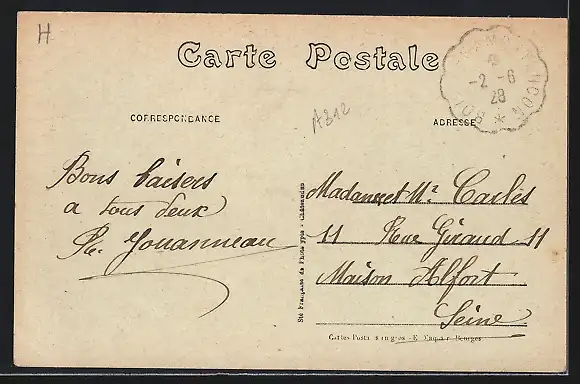 H
Carte Postale
CORRESPONDANCE
A312
ADRESSE
-2 -6
28
Bons baisers
a tous deux
Jouanneau
Madame et Mr Carlès
11 Rue Giraud 11
Maison Alfort
Seine
Sté Française de Phototypie - Châteaudun
Bourges